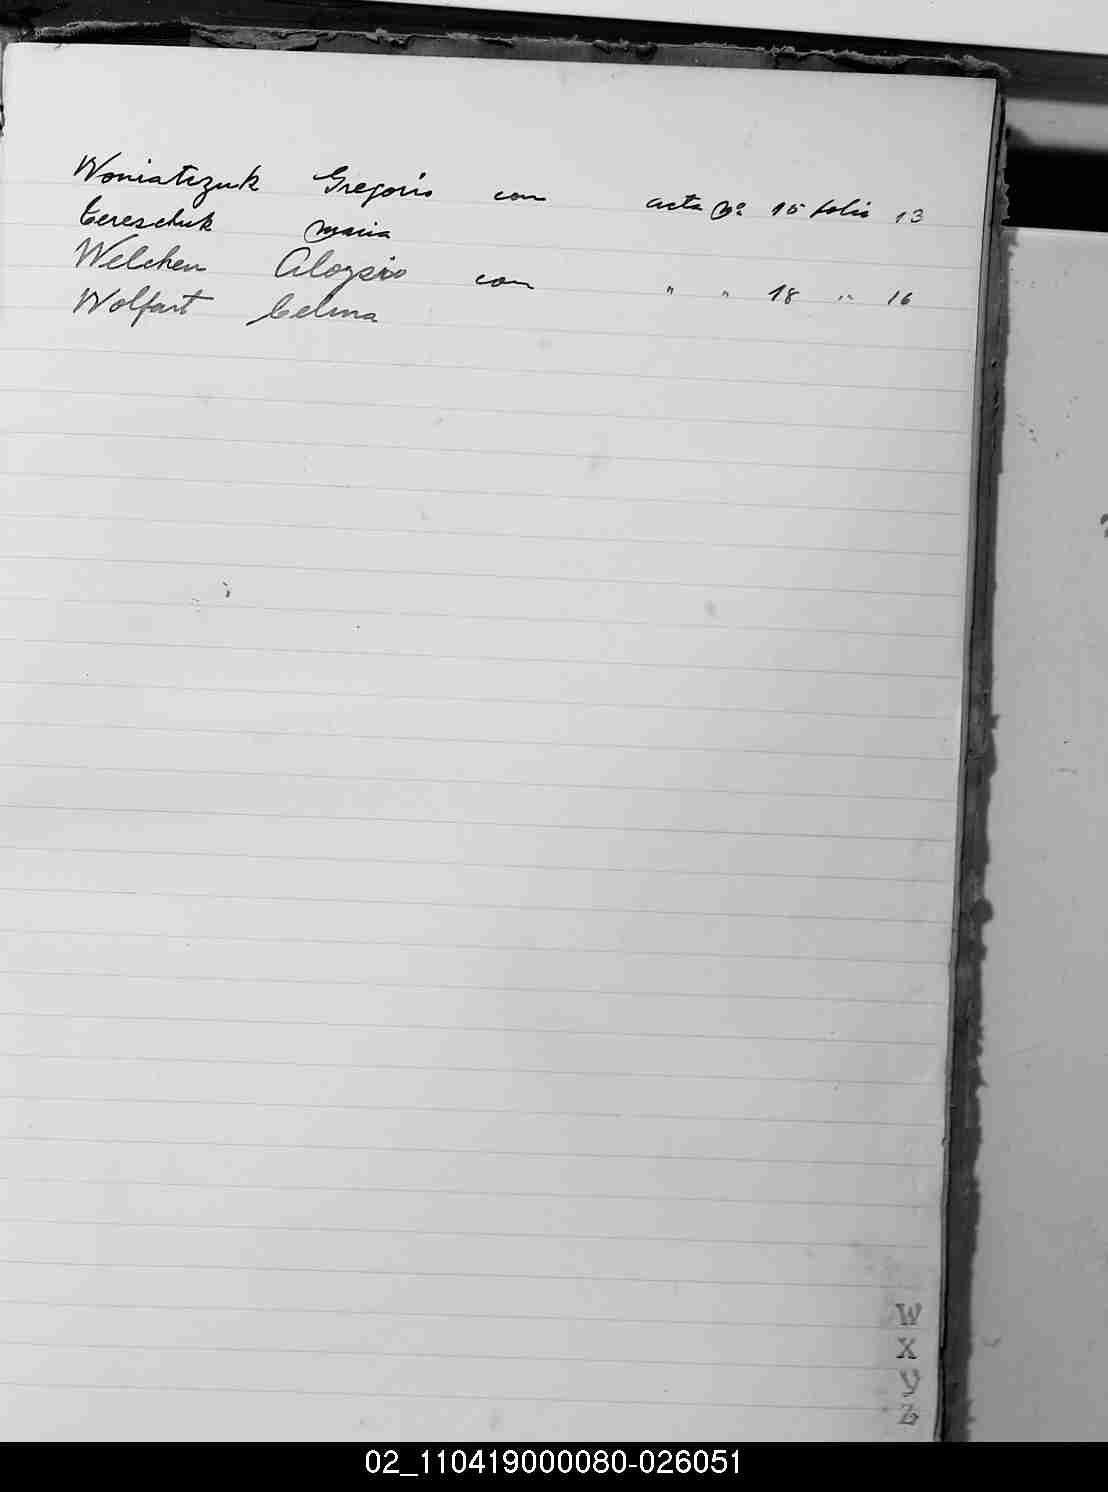 Woniatczuk Gregorio con acta Nº 15 folio 13
Tereschuk Maria
Welchen Aloysio con " " 18 " 16
Wolfart Celma
W
X
Y
Z
02_110419000080-026051